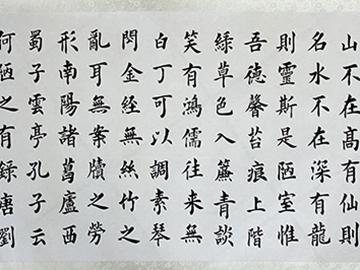 山不在高有仙則
名水不在深有龍
則靈斯是陋室惟
吾德馨苔痕上階
綠草色入簾青談
笑有鴻儒往來無
白丁可以調素琴
閱金經無絲竹之
亂耳無案牘之勞
形南陽諸葛廬西
蜀子雲亭孔子云
何陋之有錄唐劉